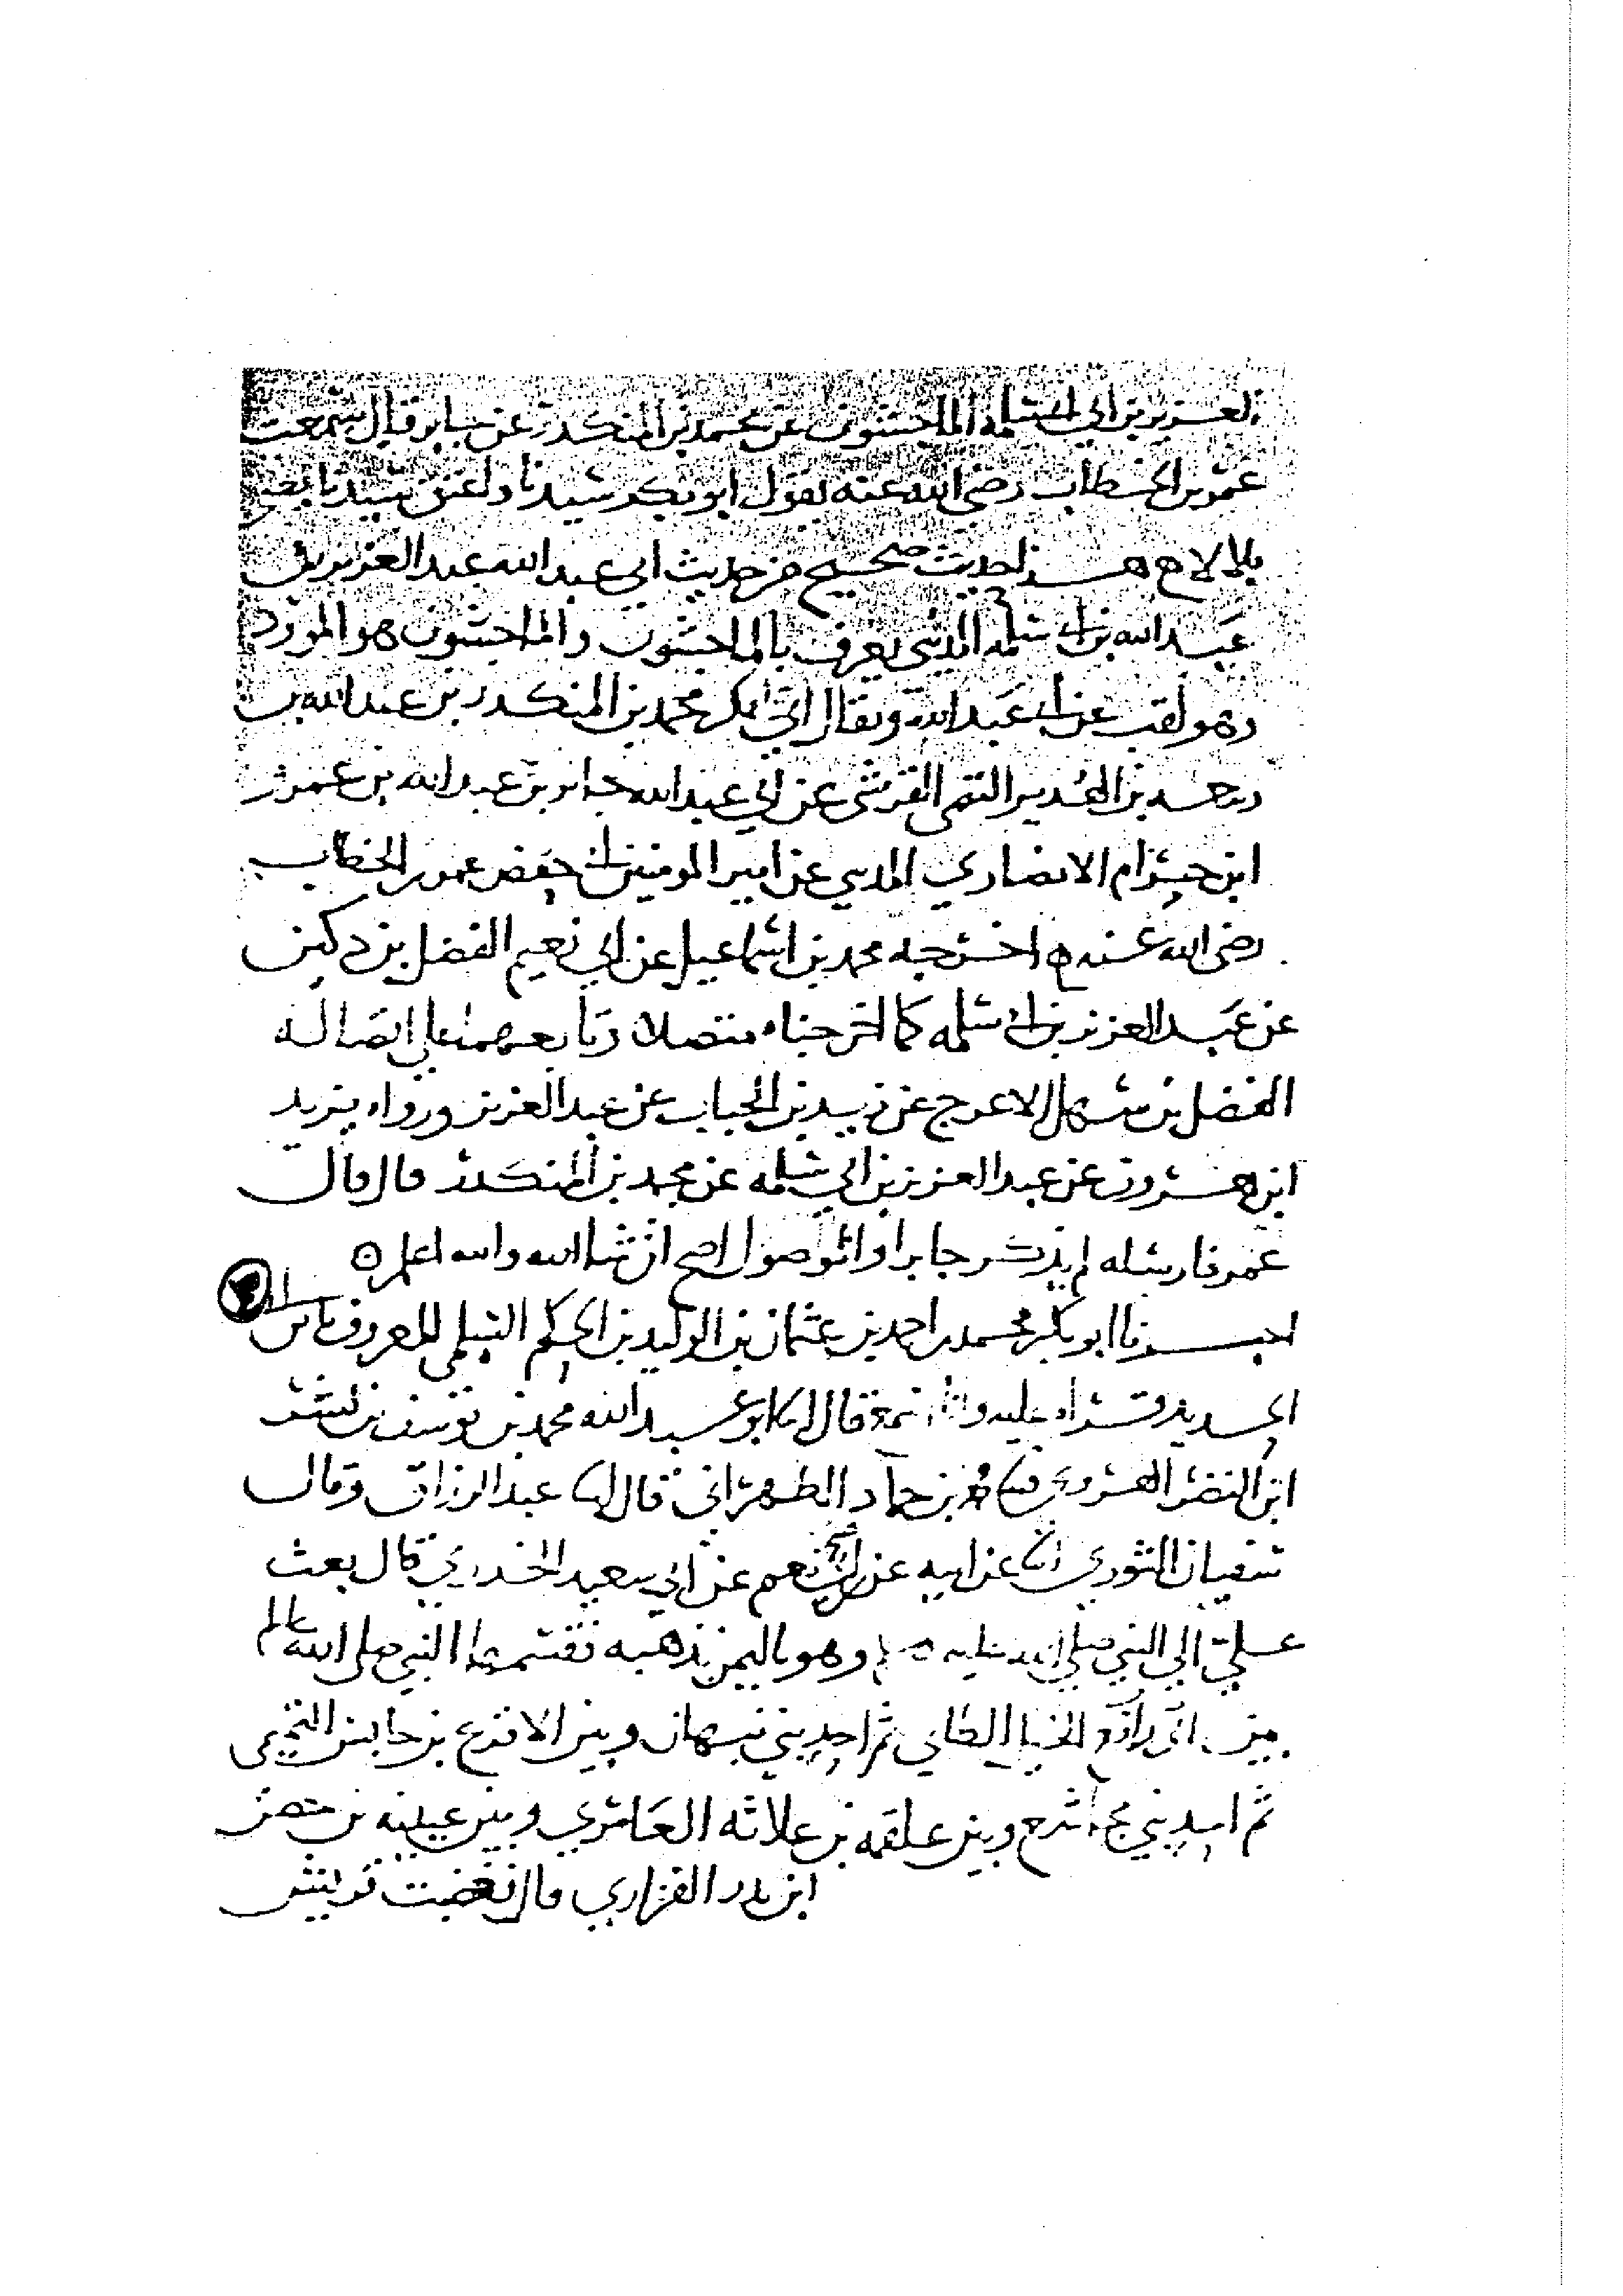 العزيز بن ابي سلمه الماجشون عن محمد بن المنكدر عن جابر قال سمعت
عمر بن الخطاب رضي الله عنه يقول ابو بكر سيدنا واعتق سيدنا يعني
بلالا هذا حديث صحيح من حديث ابي عبد الله عبد العزيز بن
عبد الله بن ابي سلمه المديني يعرف بالماجشون والماجشون هو المورد
وهو لقب عن ابي عبد الله ويقال ابي بكر محمد بن المنكدر بن عبد الله بن
ربيعه بن الهدير التيمي القرشي عن ابي عبد الله جابر بن عبد الله بن عمرو
ابن حرام الانصاري المديني عن امير المومنين ابي حفص عمر بن الخطاب
رضي الله عنه اخرجه محمد بن اسماعيل عن ابي نعيم الفضل بن دكين
عن عبد العزيز بن ابي سلمه كما اخرجناه متصلا وتابعهما علي اتصاله
الفضل بن سهل الاعرج عن زيد بن الحباب عن عبد العزيز ورواه يزيد
ابن هرون عن عبد العزيز بن ابي سلمه عن محمد بن المنكدر قال قال
عمر فارسله لم يذكر جابرا والموصول اصح ان شا الله والله اعلم
اخبرنا ابو بكر محمد بن احمد بن عثمان بن الوليد بن الحكم السلمي المعروف بابن ابي
الحديد قراه عليه وانا اسمع قال انا ابو عبد الله محمد بن يوسف بن بشر
ابن النضر الهروي محمد بن حماد الطهراني قال انا عبد الرزاق وقال
سفيان الثوري انا عن ابيه عن ابن ابي نعم عن ابي سعيد الخدري قال بعث
علي الي النبي صلي الله عليه وسلم وهو باليمن بذهبه فقسمها النبي صلي الله عليه وسلم
بين زيد الخيل الطائي ثم احد بني نبهان وبين الاقرع بن حابس التميمي
ثم احد بني مجاشع وبين علقمه بن علاثه العامري وبين عيينه بن حصن
ابن بدر الفزاري قال فغضبت قريش